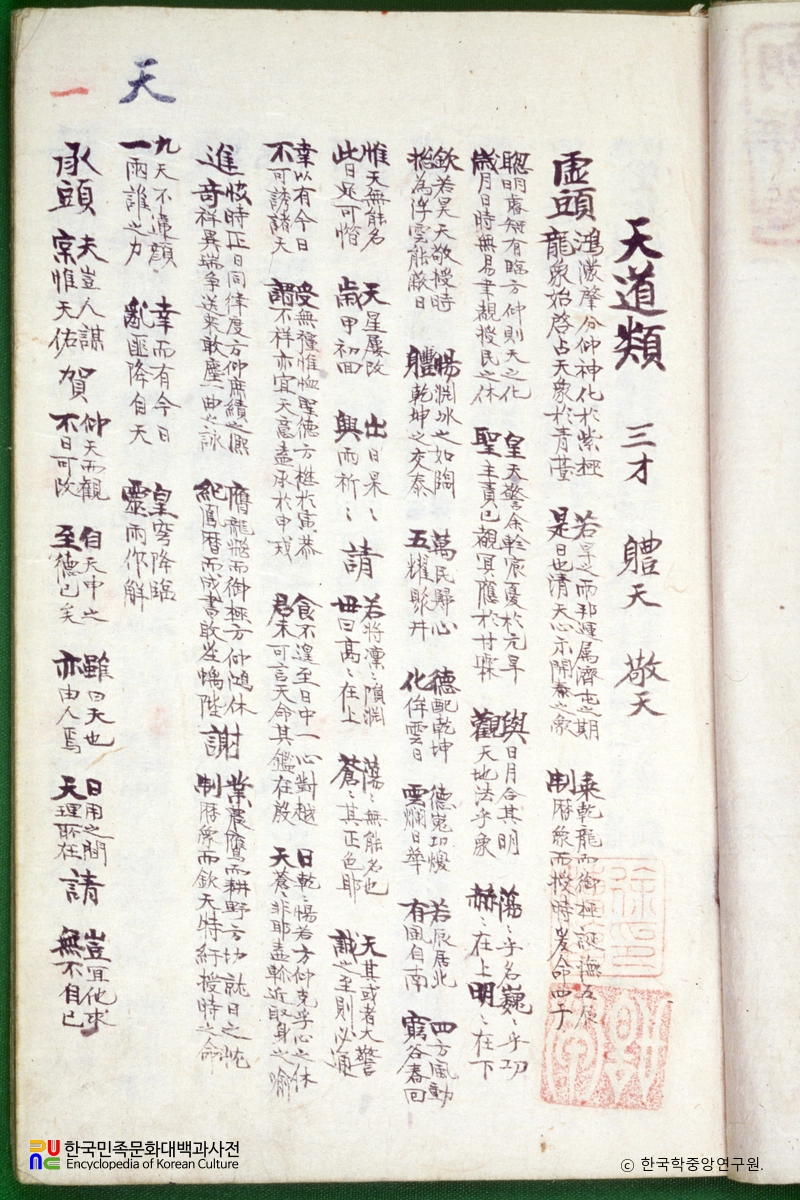 天道類 三才 軆天 敬天
虛頭 鴻濛肇分仰神化於紫極 龍象始啓占天象於青臺 若 之而邦運属濟屯之期 是日也清天心示開泰之象 乘乾龍而御極誕撫五辰 制曆象而授時爰命四子
聰明睿知有臨方仰則天之化 歲月日時無易聿觀授民之休 皇天警余軫宸憂於元旱 聖主責已覩冥應於甘霖 與日月合其明 觀天地法乎象 蕩〻乎名巍〻乎功 赫〻在上明〻在下
欽若昊天敬授時 抬為浮雲能蔽日 惕淵冰之如隕 軆乾坤之交泰 萬民歸心 五耀聚井 德配乾坤 化侔雲日 德嵬功煥 雲爛日華 若辰居北 有風自南 四方風動 窮谷春回
惟天無能名 此日足可惜 天星屢改 歲甲初回 出日杲〻 興雨祈〻 請 若將凜〻隕淵 毋曰高〻在上 蕩〻無能名也 蒼〻其正色耶 天其或者大警 誠之至則必通
幸以有今日 不可誘諸天 受無疆惟恤聖德方懋於寅恭 謂不祥亦宜天意盍承於申戒 食不遑至日中一心對越 君未可言天命其鑑在殷 日乾〻惕若方仰克孚心之休 天蒼〻非耶盍軫近取身之喩
進 岐時正日同律度方仰庶績之熙 奇祥異瑞爭送來敢塵一曲之詠 膺龍飛而御極方仰隨休 紀鳳曆而成書敢塵蝸陛 謝 業農 而耕野方切就日之忱 制曆象而欽天特紆授時之命
九天不違顔 一雨誰之力 幸而有今日 亂匪降自天 皇穹降臨 靈雨作解
承頭 夫豈人謀 寔惟天佑 賀 仰天而觀 不日可改 自天申之 至德已矣 雖曰天也 亦由人焉 日用之間 天理所在 請 豈宜他求 無不自已
天
一
한국민족문화대백과사전
Encyclopedia of Korean Culture
© 한국학중앙연구원.